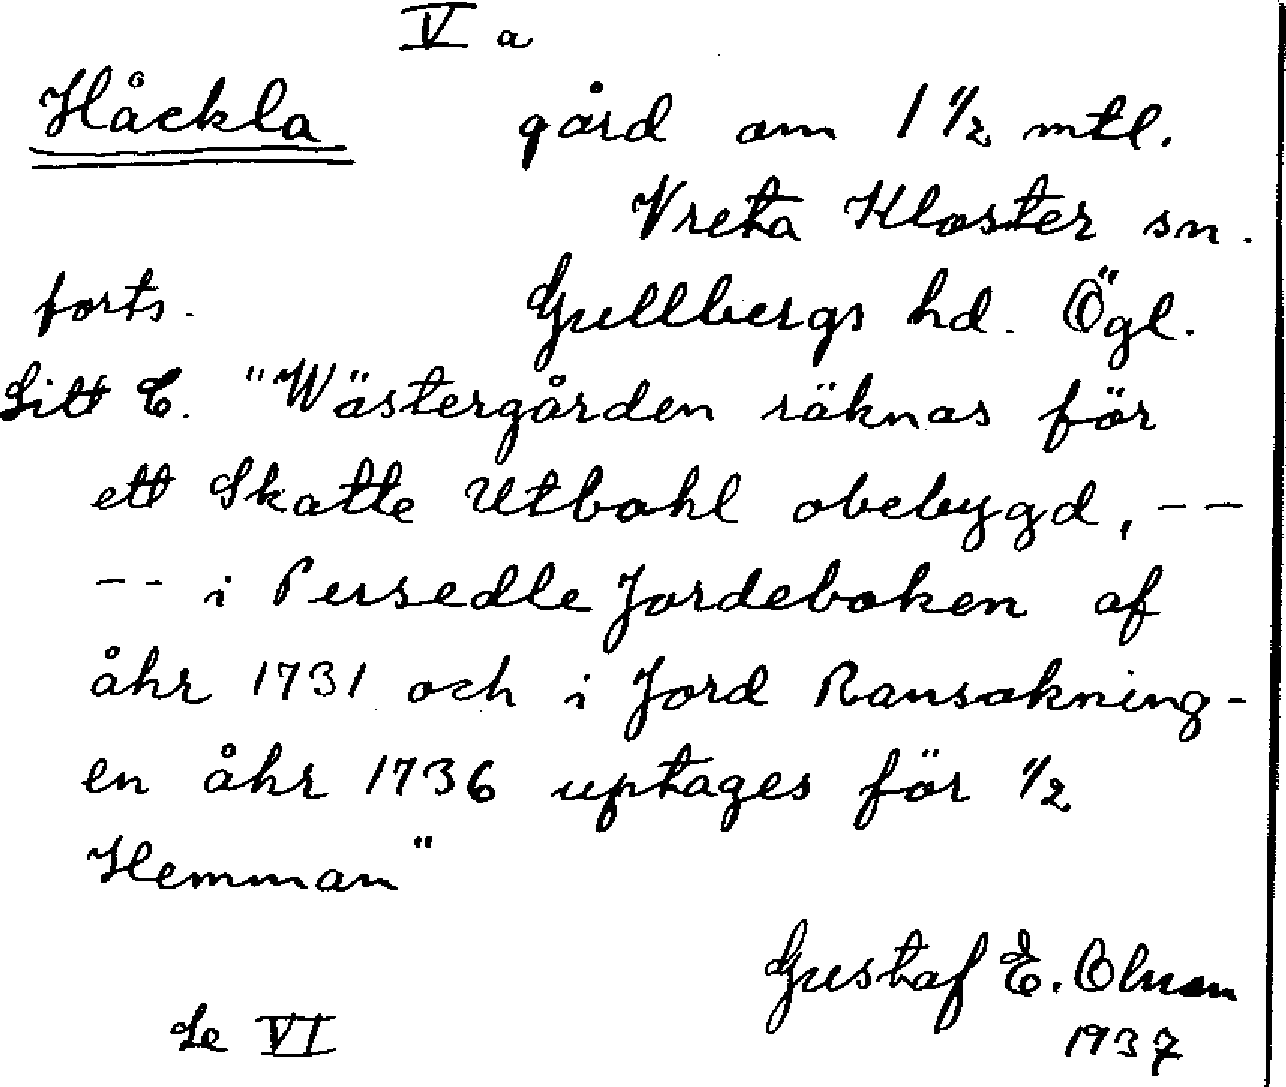 V a
Håckla gård om 1 1/2 mtl.
Vreta Kloster sn.
forts. Gullbergs hd. Ögl.
Litt C. "Wästergården räknas för
ett Skatte Utbohl obebygd, --
-- i Persedle Jordeboken af
åhr 1731 och i Jord Ransakning-
en åhr 1736 uptages för 1/2
Hemman"
Gustaf E.
Se VI 1937